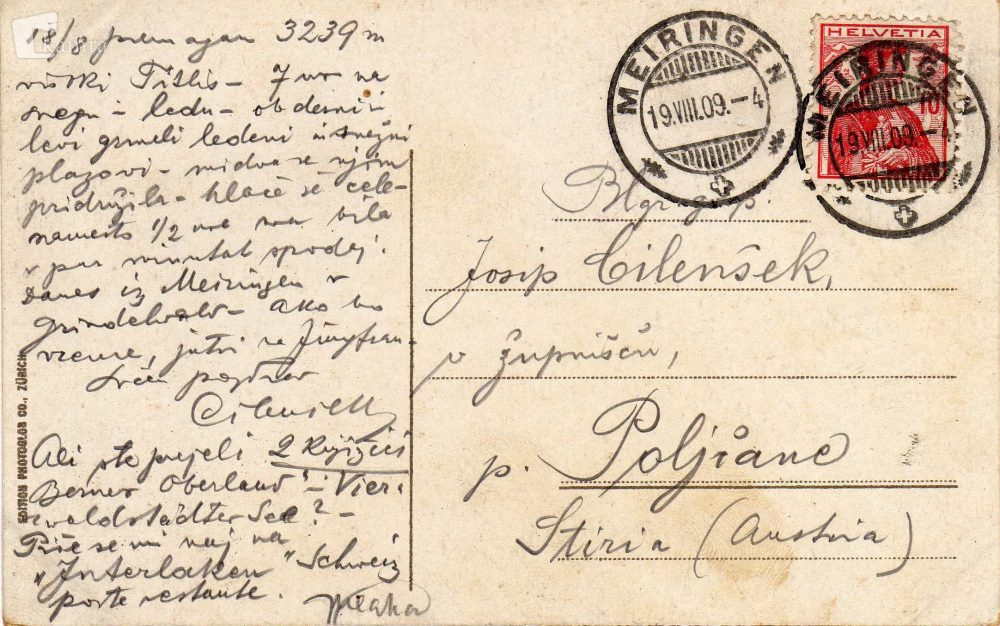 18/8 premagan 3239 m
visoki Titlis - 7 ur na
snegu - ledu - ob desni i
levi grmeli ledeni i snežni
plazovi - midva se njim
pridružila - hlače se cele -
namesto 1/2 ure sva bila
v par minutah spodej!
Danes iz Meiringen v
Grindelwald - ako bo
vreme, jutri na Jungfrau -
Srčen pozdrav
Cilenšek
Ali ste prejeli 2 knjižici
"Berner Oberland" - Vier-
waldstädter See? -
Piše se mi naj na
"Interlaken" Schweiz
poste restante.
EDITION PHOTOGLOB CO., ZÜRICH
MEIRINGEN
19.VIII.09.-4
HELVETIA
10
MEIRINGEN
19.VIII.09.-4
Blgr. g. p.
Josip Cilenšek,
v župnišču,
p. Poljčane
Stiria (Austria)